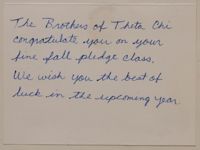 The Brothers of Theta Chi
congratulate you on your
fine fall pledge class.
We wish you the best of
luck in the upcoming year